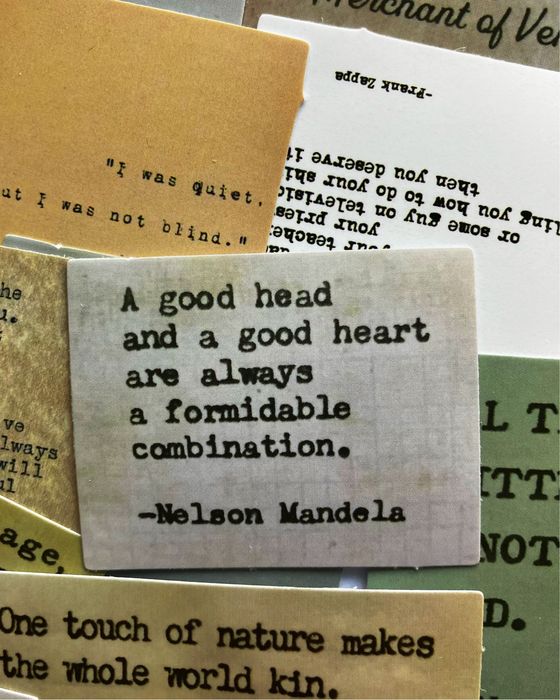 erchant of Ve
"I was quiet,
ut I was not blind."
-Frank Zappa
then you deserve it
ling you how to do your shi
or some guy on televisio
your pries
your teacher
he
u.
ve
lways
will
ul
A good head
and a good heart
are always
a formidable
combination.
-Nelson Mandela
L T
ITT
NOT
D.
age,
One touch of nature makes
the whole world kin.